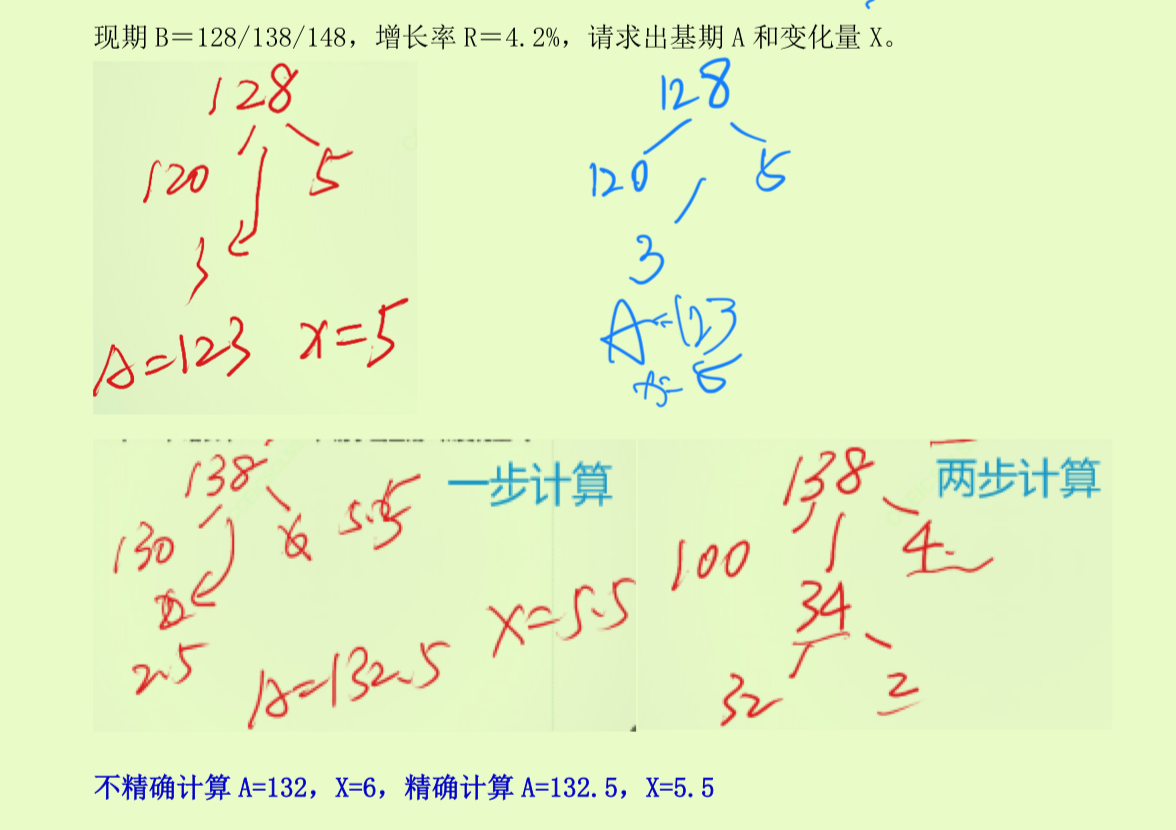 现期 B＝128/138/148，增长率 R＝4.2%，请求出基期 A 和变化量 X。
128
120 5
3
A=123 x=5
128
120 5
3
A=123
x=5
138 一步计算
130 6 5.5
2.5
A=132.5 X=5.5
138 两步计算
100 4
34
32 2
不精确计算 A=132，X=6，精确计算 A=132.5，X=5.5